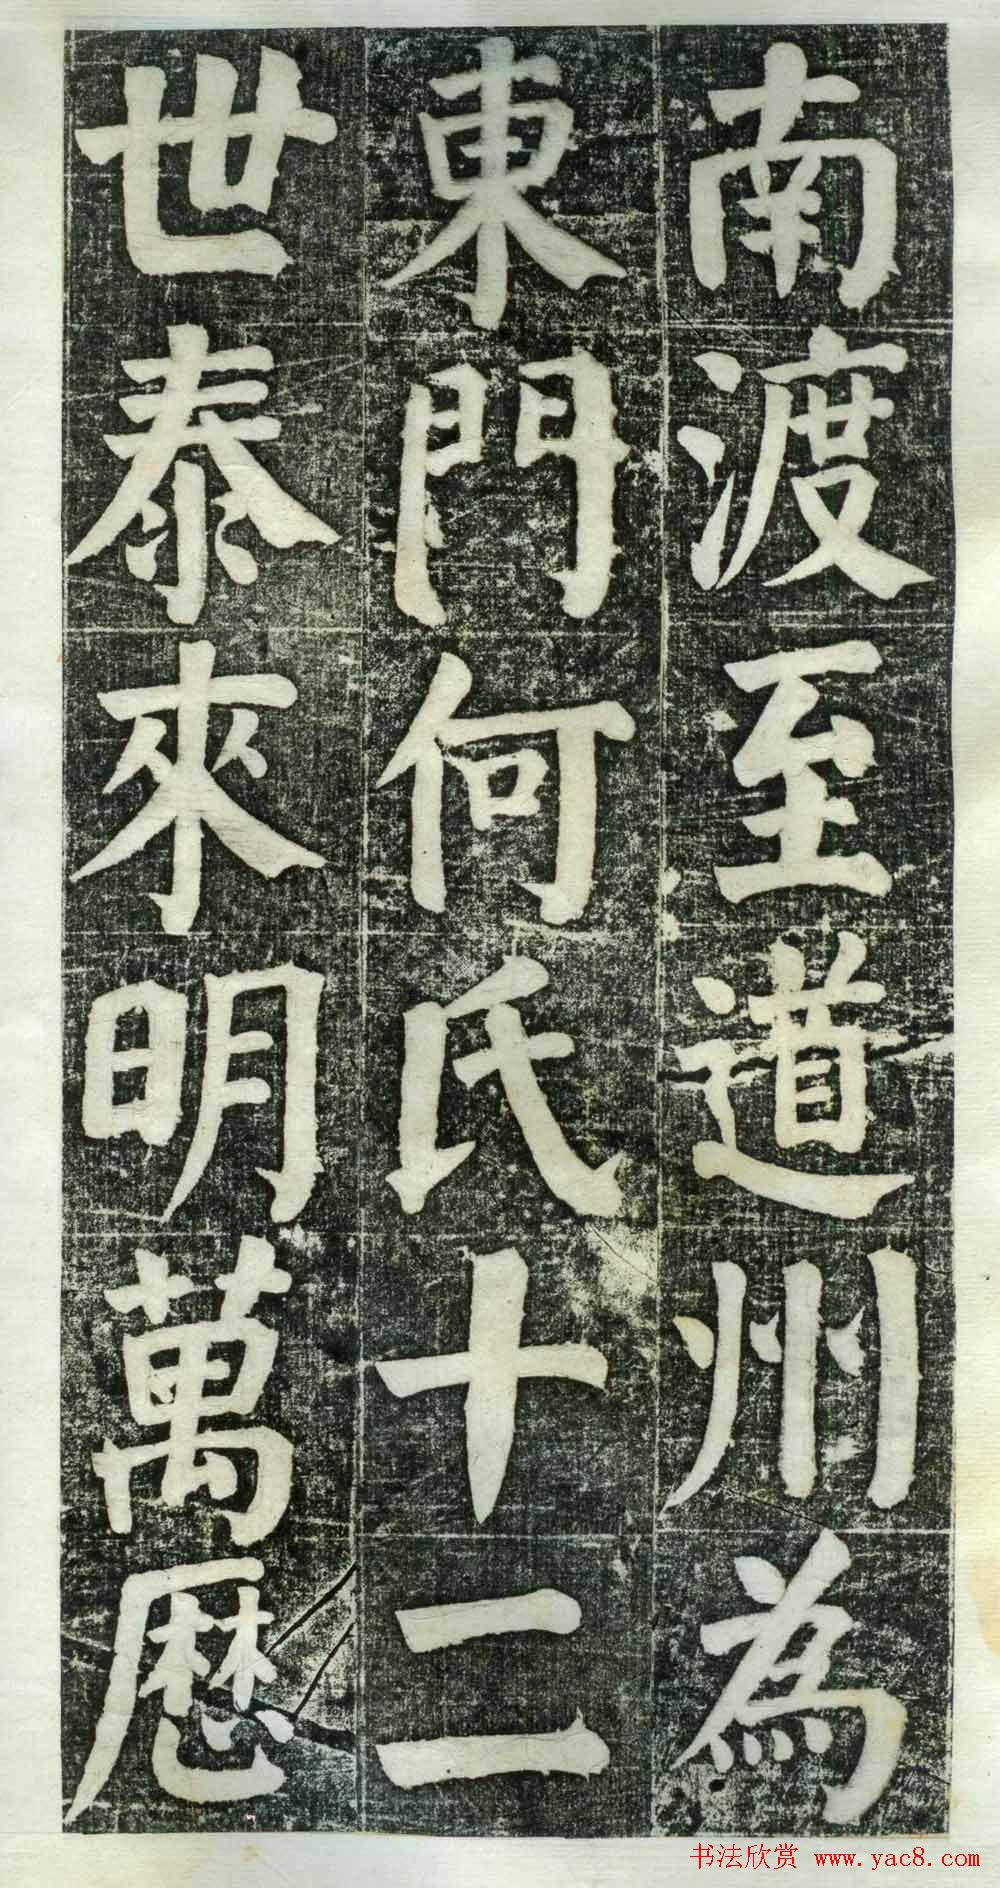 南渡至道州為
東門何氏十二
世泰來明萬㦄
书法欣赏 www.yac8.com